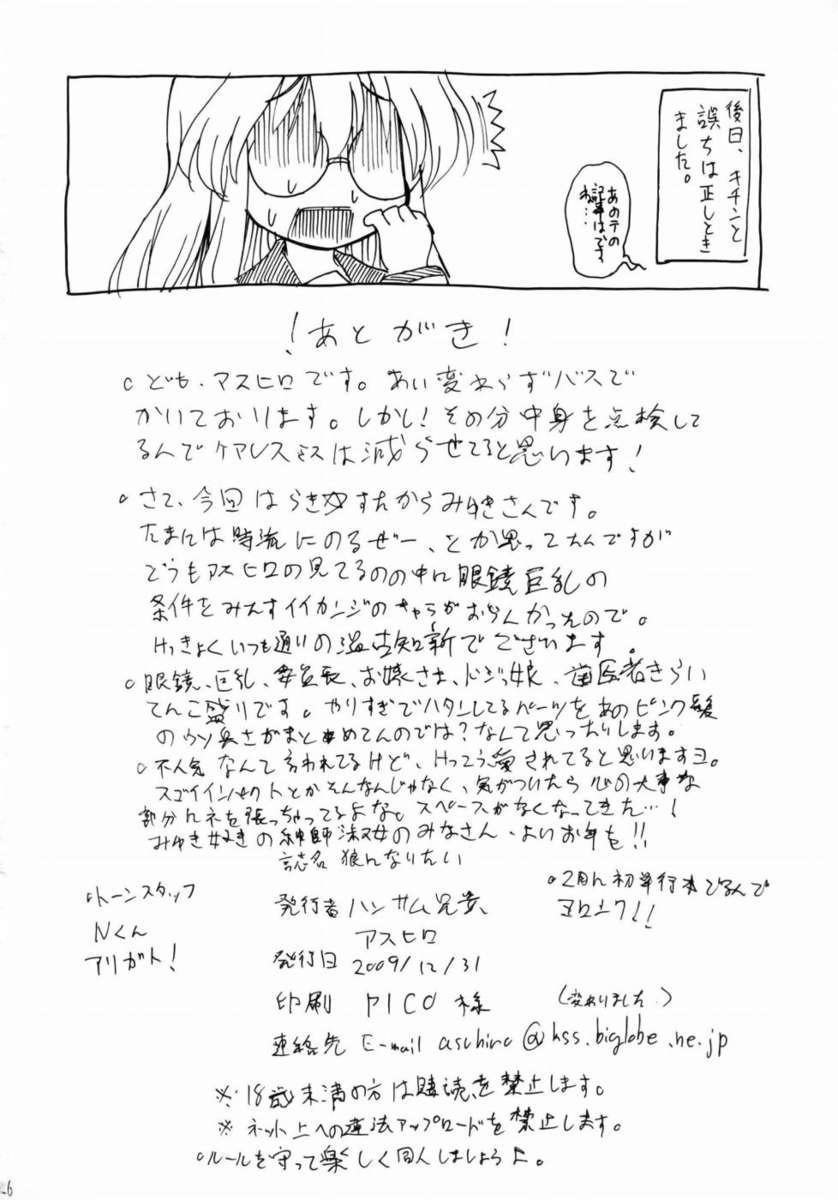 後日、キチンと
誤ちは正しとき
ました。
あの手の
記事はです
ね…
！あとがき！
○ども、アスヒロです。あい変わらずバスで
かいております。しかし！その分中身を点検して
るんでケアレスミスは減らせてると思います！
○さて、今回はらき☆すたからみゆきさんです。
たまには時流にのるぜー、とか思ってたんですが
どうもアスヒロの見てるのの中に眼鏡巨乳の
条件をみたすイイカンジのキャラがおらんかったので。
けっきょくいつも通りの温古知新でございます。
○眼鏡、巨乳、委員長、お嬢さま、ドジっ娘、歯医者きらい
てんこ盛りです。やりすぎでハタンしてるパーツをあのピンク髪
のウソ臭さがまとめてんのでは？なんて思っちりします。
○不人気なんて言われてるけど、けっこう愛されてると思いますヨ。
スゴイインパクトとかそんなんじゃなく、気がついたら心の大事な
部分にネを張っちゃってるよな。スペースがなくなってきた…！
みゆき好きの紳師淑女のみなさん、よいお年を!!
誌名 狼んなりたい
○トーンスタッフ
Nくん
アリガト！
発行者 ハンサム兄貴、
アスヒロ
発行日 2009/12/31
印刷 PICO 様
○2月に初単行本でるんで
ヨロシク!!
(変わりました。)
連絡先 E-mail aschiro@kss.biglobe.ne.jp
※18歳未満の方は購読を禁止します。
※ネット上への違法アップロードを禁止します。
○ルールを守って楽しく同人しましょうよ。